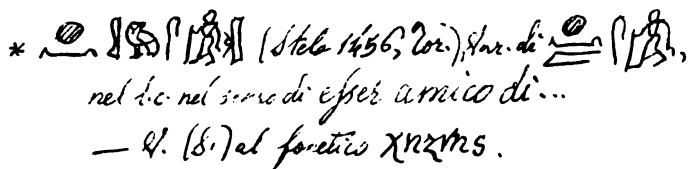 * (Stele 1456, Tor.), Var. di
nel l.c. nel senso di esser amico di...
— V. (S.) al fonetico χnzms.